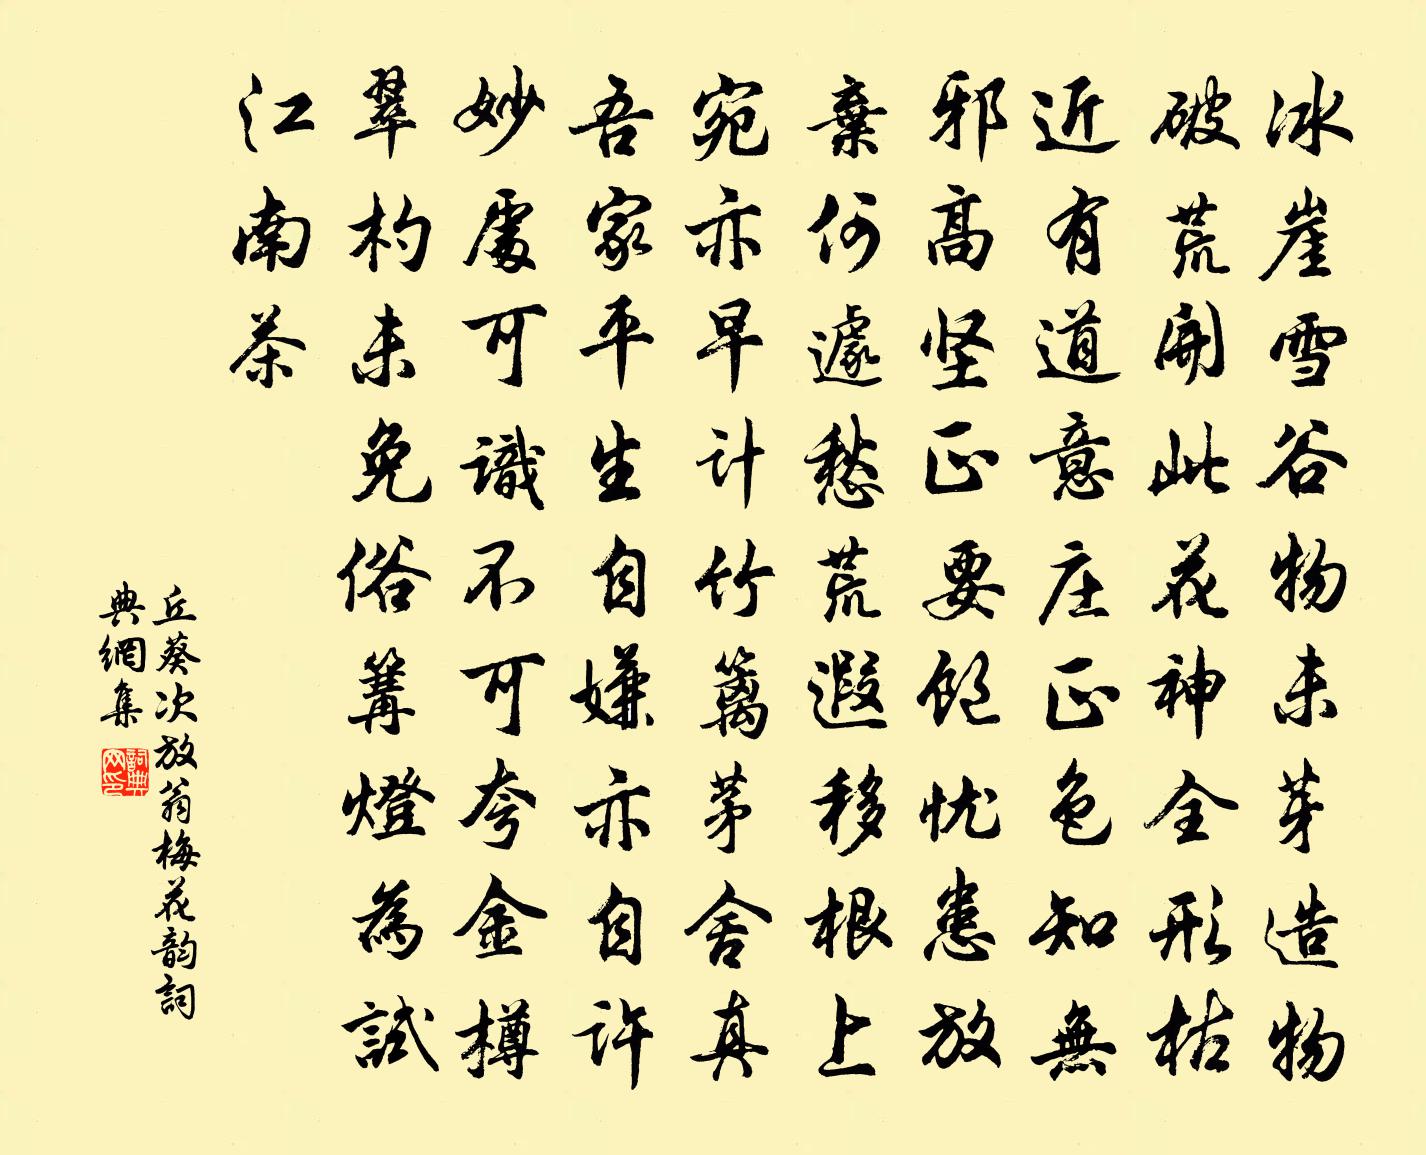 冰崖雪谷物未芽造物
破荒開此花神全形枯
近有道意庄正色知無
邪高坚正要饱忧患放
棄何遽愁荒遐移根上
宛亦早计竹篱茅舍真
吾家平生自嫌亦自许
妙處可識不可夸金樽
翠杓未免俗篝燈為試
江南茶
丘葵次放翁梅花韵詞
典網集
詞典
网印